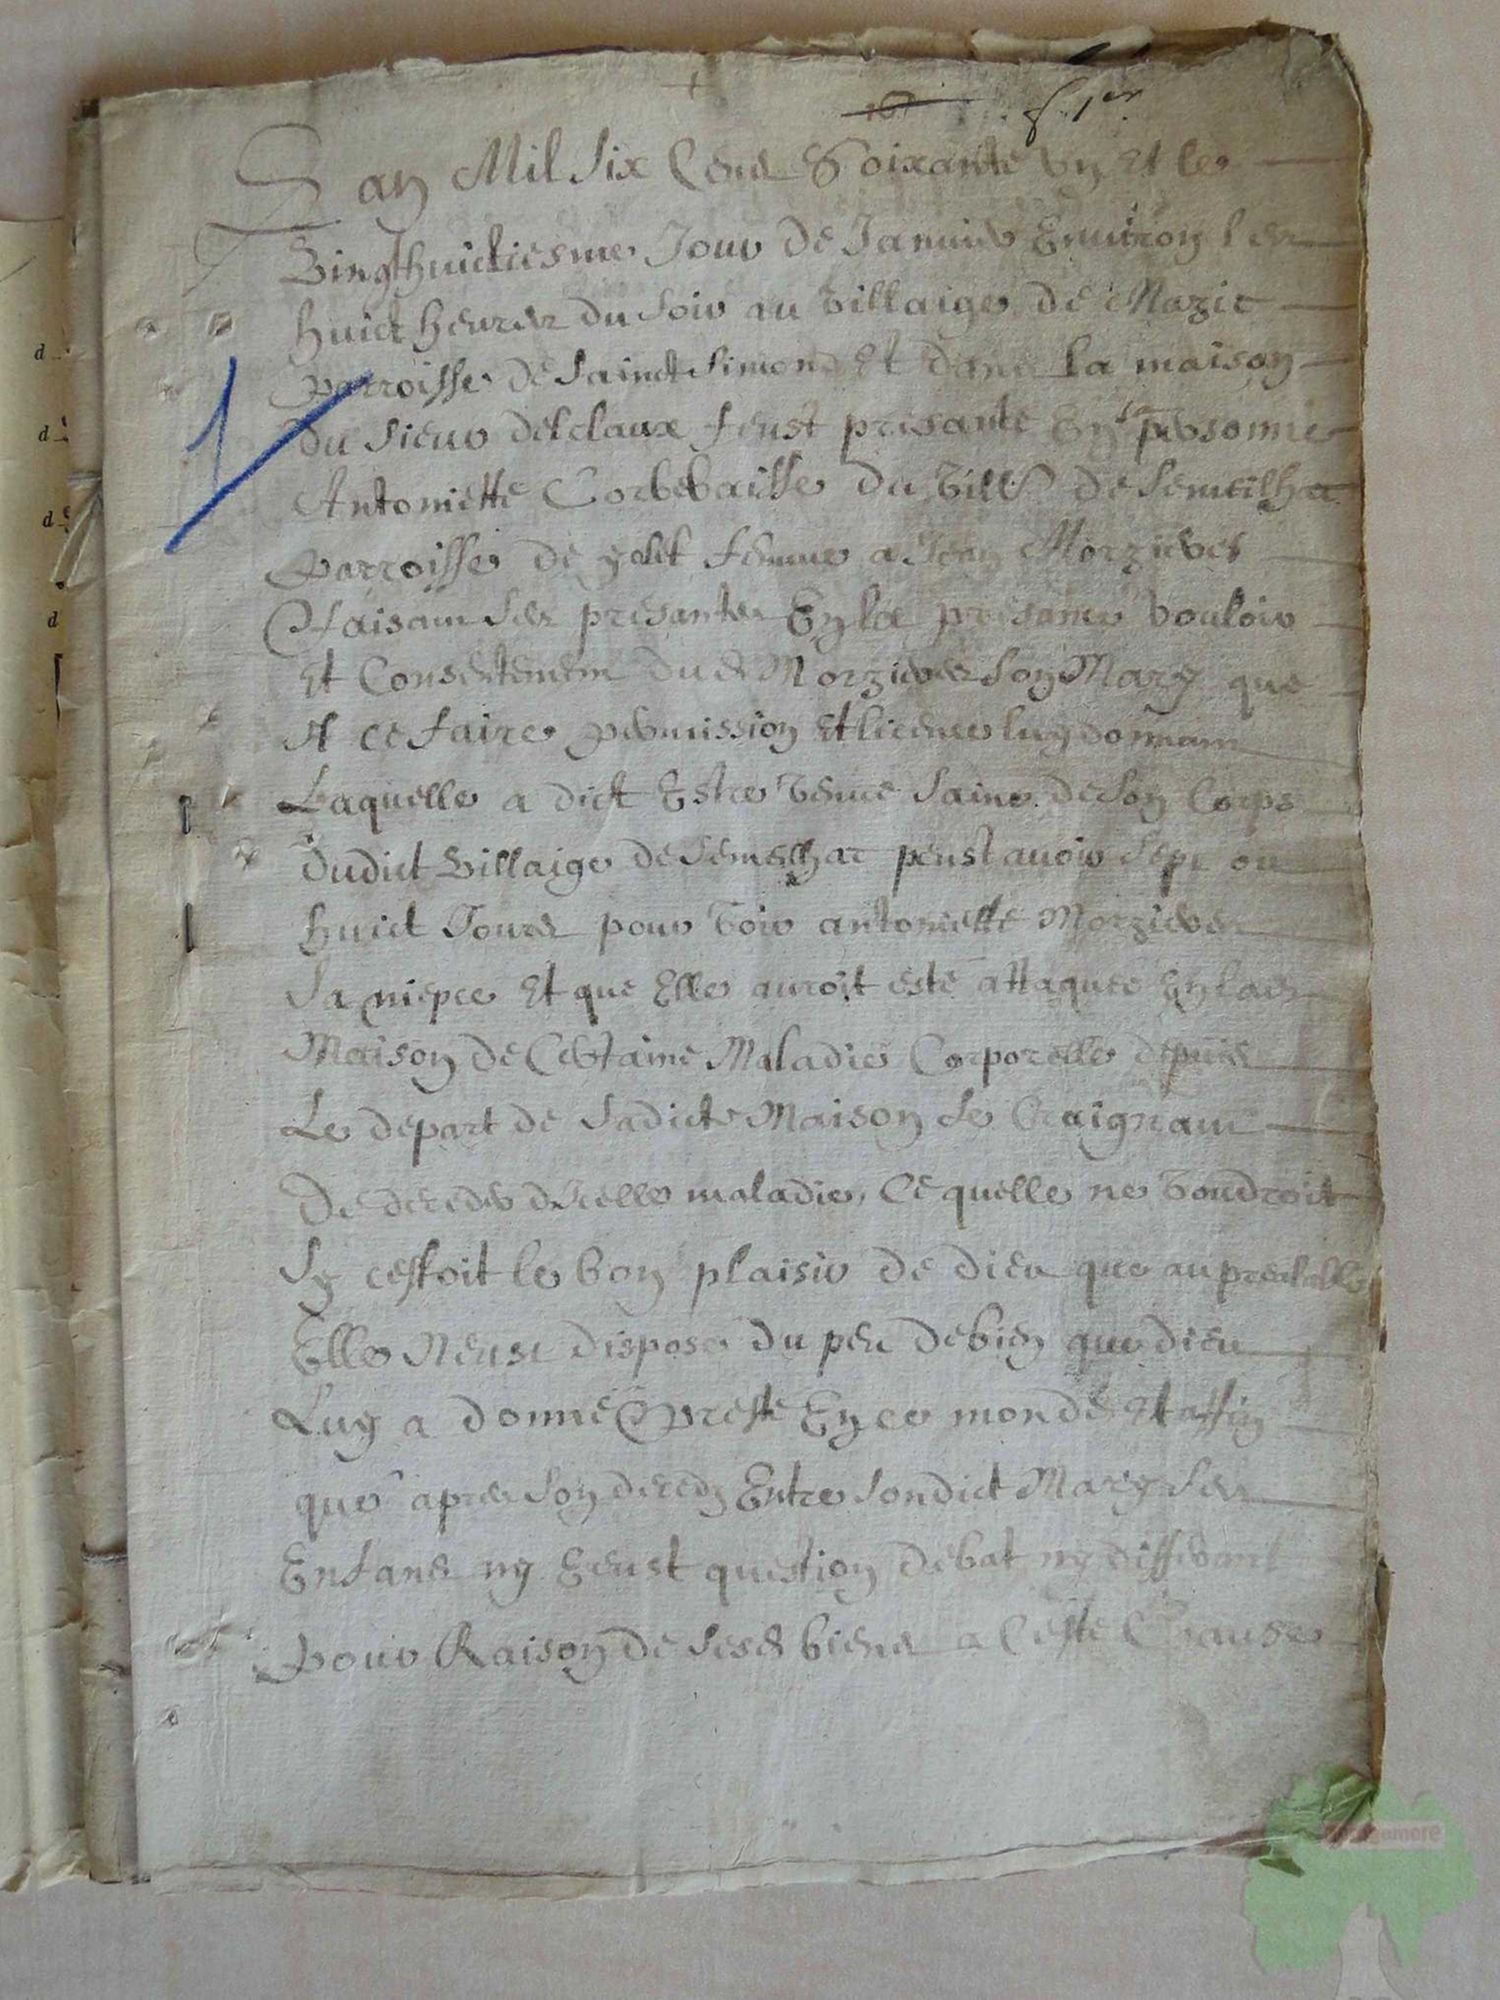 f. 1er
Lan Mil Six Cens Soixante un Et le
Vingthuictiesme Jour de Janvier Environ les
huict heures du Soir au Villaige de Mazic
Parroisse de Sainct Simond Et dans la maison
du Sieur delclaux feust presante En sa personne
Antoniette Corbebaisse du Villge de Semeilhac
Parroisse de femme a Jean Morzieres
Faisant Ses presantes En la presance Vouloir
Et Consentement dud Morzieres Son Mary que
A ce faire permission Et licence luy donnant
Laquelle a dict Estre Venue Saine de Son Corps
dudict Villaige de Semeilhac peust avoir Sept ou
huict Jours pour Voir antoniette Morzieres
Sa niepce Et que Elle auroit esté attaquée En lad
Maison de Certaine Maladie Corporelle depuis
Le depart de Sadicte Maison Se Craignant
De deceder dIcelle maladie, Ce quelle ne Voudroit
Sy cestoit le bon plaisir de dieu que au prealable
Elle Neust dispose du peu de bien que dieu
Luy a donné Et preste En ce monde Et affin
que apres Son deceds Entre Sondict Mary Ses
Enfans ny Eeust question debat ny differant
Pour Raison de Sesd biens a Ceste Cause
d
d
d
d